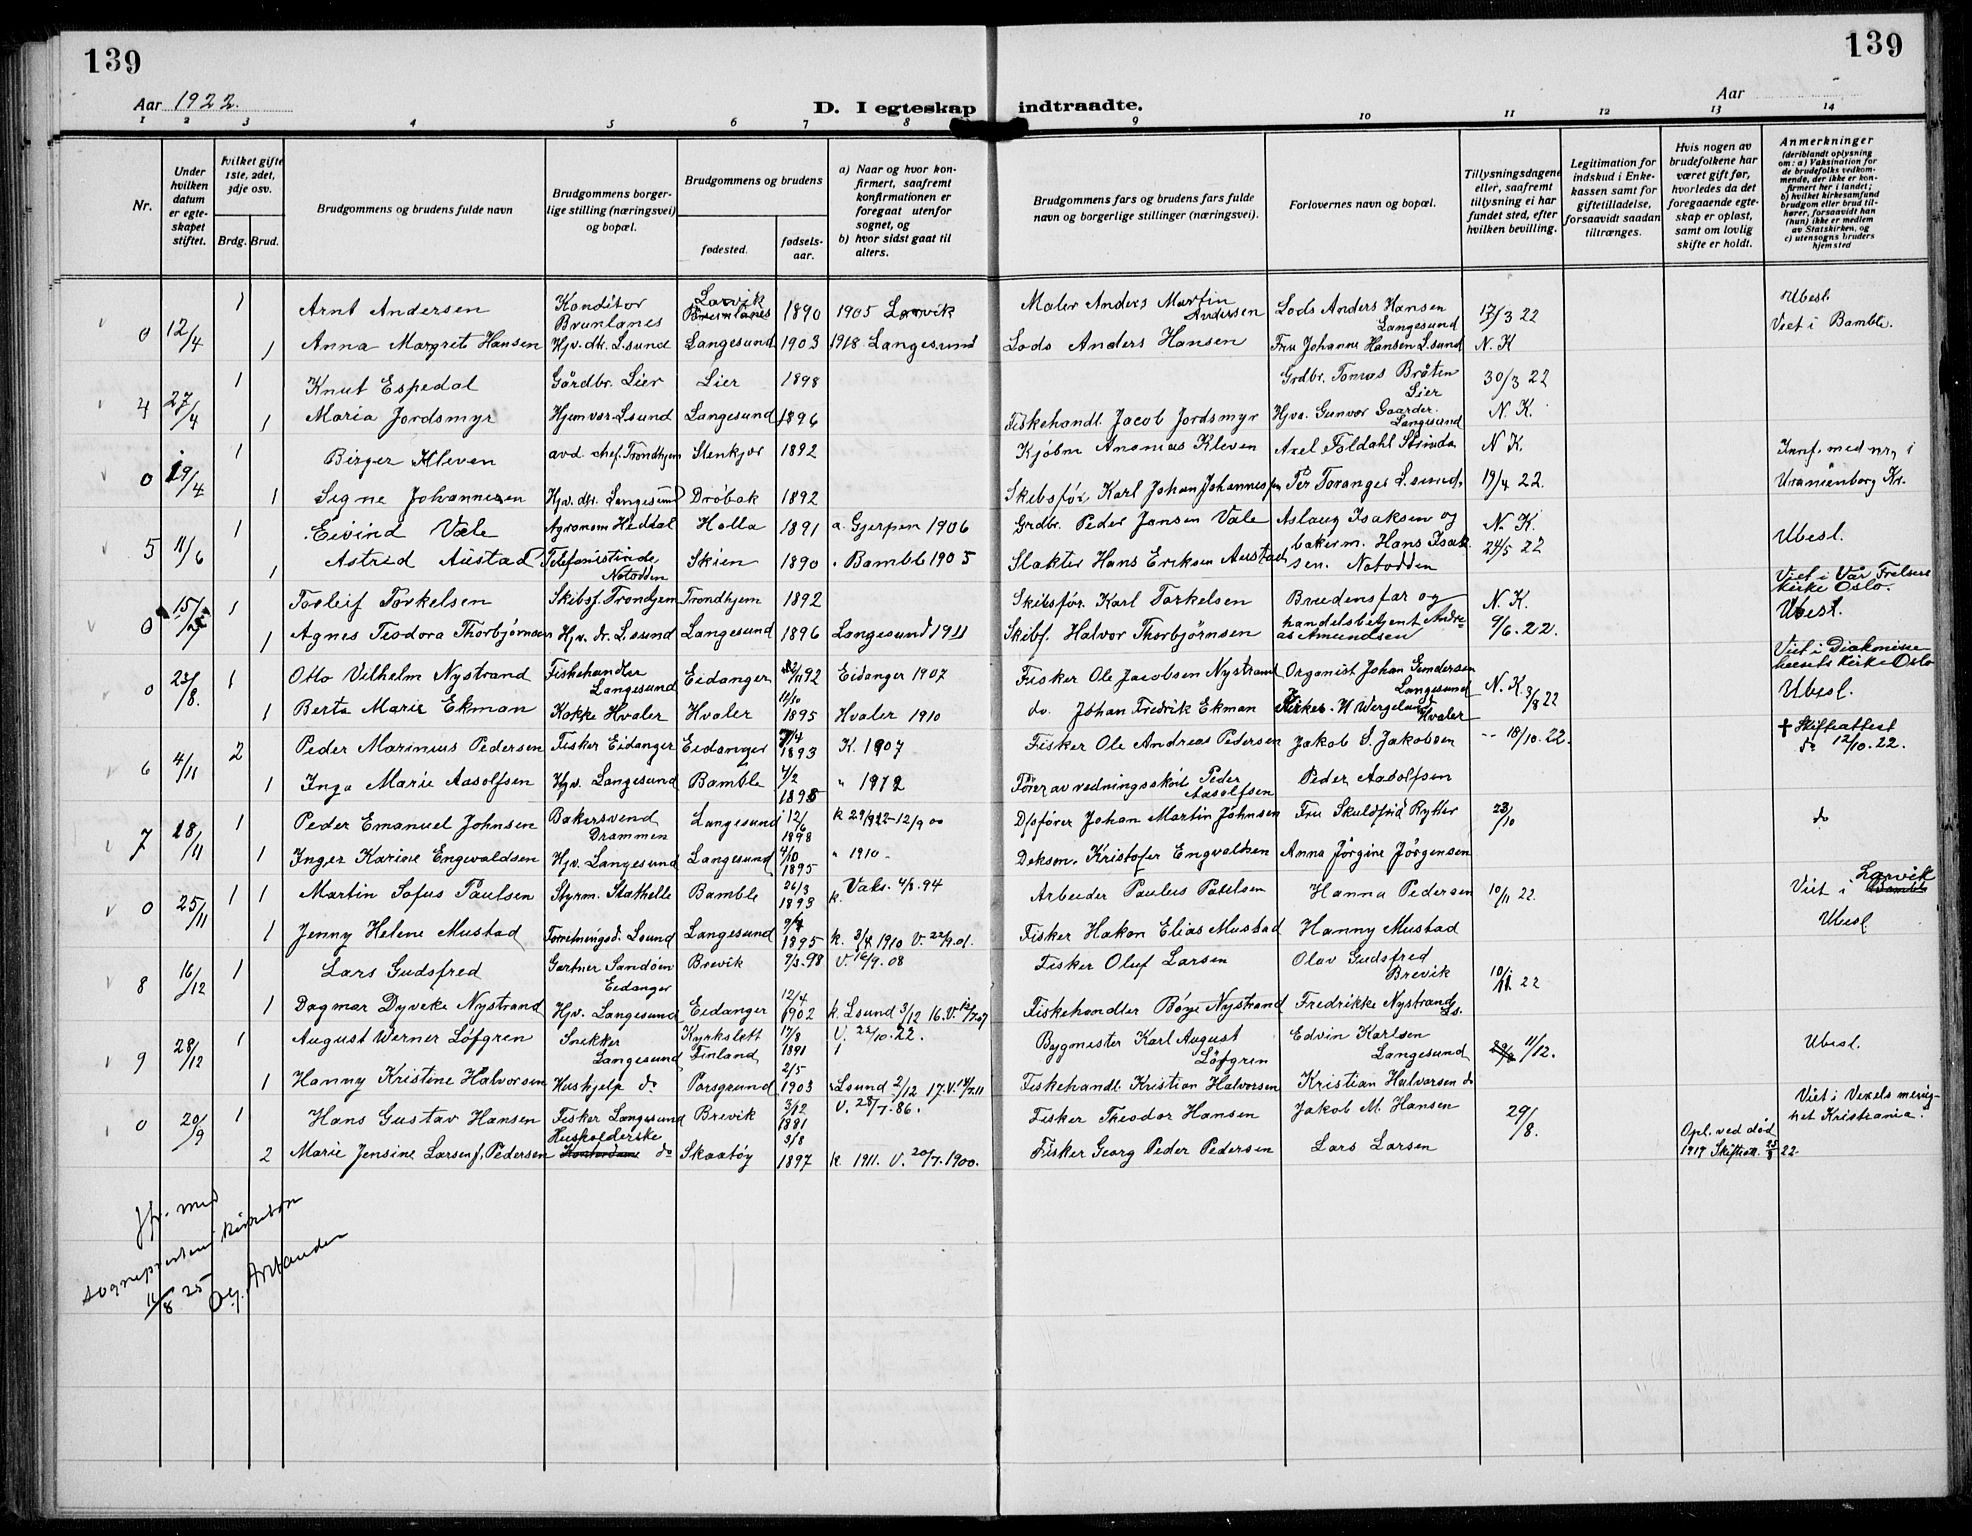 139
139
Aar 1922.
D. I egteskap indtraadte.
Aar
1 2 3 4 5 6 7 8 9 10 11 12 13 14
Nr.
Under hvilken datum er egteskapet stiftet.
hvilket gifte 1ste, 2det, 3dje osv.
Brdg. Brud.
Brudgommens og brudens fulde navn
Brudgommens borgerlige stilling (næringsvei) og bopæl.
Brudgommens og brudens
fødested.
fødselsaar.
a) Naar og hvor konfirmert, saafremt konfirmationen er foregaat utenfor sognet, og
b) hvor sidst gaat til alters.
Brudgommens fars og brudens fars fulde navn og borgerlige stillinger (næringsvei).
Forlovernes navn og bopæl.
Tillysningsdagene eller, saafremt tillysning ei har fundet sted, efter hvilken bevilling.
Legitimation for indskud i Enkekassen samt for giftetilladelse, forsaavidt saadan tiltrænges.
Hvis nogen av brudefolkene har været gift før, hvorledes da det foregaaende egteskap er opløst, samt om lovlig skifte er holdt.
Anmerkninger
(deriblandt oplysning om: a) Vaksination for de brudefolks vedkommende, der ikke er konfirmert her i landet; b) hvilket kirkesamfund brudgom eller brud tilhører, forsaavidt han (hun) ikke er medlem av Statskirken, og c) utensogns bruders hjemsted
0 12/4 1 Arnt Andersen Konditor Brunlanes Larvik Brunlanes 1890 1905 Larvik Maler Anders Martin Andersen Lods Anders Hansen Langesund 17/3 22 Ubesl.
1 Anna Margrete Hansen Hjv. dtr. L.sund Langesund 1903 1918 Langesund Lods Anders Hansen Fru Johanne Hansen L.sund N. K Viet i Bamble.
4 27/4 1 Knut Espedal Gårdbr. Lier Lier 1898 Grdbr. Tomas Bråten Lier 30/3 22
1 Maria Jordsmyr Hjemvær. Lsund Langesund 1896 Fiskehandl. Jacob Jordsmyr Hjv. Gunvor Gaarder. Langesund N. K.
0 19/4 1 Birger Kleven avd. chef. Trondhjem Stenkjær 1892 Kjøbm Ananias Kleven Axel Foldahl Strinda N K. Innf. med nr, i
1 Signe Johannesen Hjv. dtr. Langesund Drøbak 1892 Skibsfør Karl Johan Johannesen Per Toranger L.sund. 19/4 22. Uranienborg Kr.
5 11/6 1 Eivind Vale Agronom Heddal Holla 1891 a. Gjerpen 1906 Grdbr. Peder Jansen Vale Aslaug Isaksen og N. K.
1 Astrid Austad Telefonistinde Notodden Skien 1890 " Bamble 1905 Slakter Hans Eriksen Austad bakerm. Hans Isaksen. Notodden 24/5 22 Ubesl.
0 15/ 1 Torleif Torkelsen Skibsf. Trondhjem Trondhjem 1892 Skibsfør. Karl Torkelsen Brudens far og N. K. Viet i Vår Frelsers kirke Oslo.
1 Agnes Teodora Thorbjørnsen Hjv. dr. L.sund Langesund 1896 Langesund 1911 Skibf. Halvor Thorbjørnsen handelsbetjent Andreas Amundsen 9/6. 22. Ubesl.
0 23/8. 1 Otto Vilhelm Nystrand Fiskehandler Langesund Eidanger 22/11 92 Eidanger 1907 Fisker Ole Jacobsen Nystrand Organist Johan Gundersen Langesund Viet i Diakonissehusets kirke Oslo
1 Berta Marie Ekman Kokke Hvaler Hvaler 11/10 1895 Hvaler 1910 do. Johan Fredrik Ekman Fisker. H Wergeland Hvaler N. K. 3/8 22 Ubesl.
6 4/11 2 Peder Marinius Pedersen Fisker Eidanger Eidanger 7/4 1893 K. 1907 Fisker Ole Andreas Pedersen Jakob S. Jakobsen -- 18/10. 22. † Skifteattest do 12/10. 22.
1 Inga Marie Aasolfsen Hjv. Langesund Bamble 4/2 1895 " 1912 Fører av redningsskøit Peder Aasolfsen Peder Aasolfsen
7 18/11 1 Peder Emanuel Johnsen Bakersvend Drammen Langesund 12/6 1898 k 29/9 12-12/9 00 D/sfører Johan Martin Johnsen Fru Skuldfrid Rytter 23/10 do
1 Inger Karine Engvaldsen Hjv. Langesund Langesund 4/10 1895 " 1910. Deksm. Kristofer Engvaldsen Anna Jørgine Jørgensen
0 25/11 1 1 Martin Sofus Paulsen Styrm. Stathelle Bamble 26/3 1893 k. Vaks. 4/8. 94 Arbeider Paulus Paulsen Hanna Pedersen 10/11 22. Viet i Larvik Bamble
1 Jenny Helene Mustad Forretningsd. Lsund Langesund 9/4 1895 k. 3/4 1910 V. 22/9. 01. Fisker Hakon Elias Mustad Hanny Mustad Ubesl
8 16/12 1 Lars Gudsfred Gartner Sandøen Eidanger Brevik 9/3-98 V. 16/9. 08 Fisker Oluf Larsen Olav Gudsfred Brevik 10/11 22
1 Dagmar Dyveke Nystrand Hjv. Langesund Eidanger 12/4 1902 k. Lsund 3/12 16. V. 12/7.07 Fiskehandler Børje Nystrand Fredrikke Nystrand Ls.
9 28/12 1 August Werner Löfgren Snikker Langesund Kyrkslett Finland 17/8 1891 V. 22/10. 22. Bygmester Karl August Löfgren Edvin Karlsen Langesund 11/12. Ubesl.
1 Hanny Kristine Halvorsen Hushjelp do Porsgrund 2/5 1903 Lsund 2/12 17. V. 14/7.11 Fiskehandl. Kristian Halvorsen Kristian Halvorsen do
0 20/9 1 Hans Gustav Hansen Fisker Langesund Brevik 3/12 1881 V. 28/7. 86. Fisker Theodor Hansen Jakob M. Hansen 29/8. Viet i Vexels menighet Kristiania.
2 Marie Jensine Larsen f. Pedersen Husholderske do Skaatøy 3/8 1897 k. 1911. V. 20/7. 1900. Fisker Georg Peder Pedersen Lars Larsen Opl. ved død 1919 Skifteatt. 25/8 22.
Jfr. med
sogneprestens
11/8 25